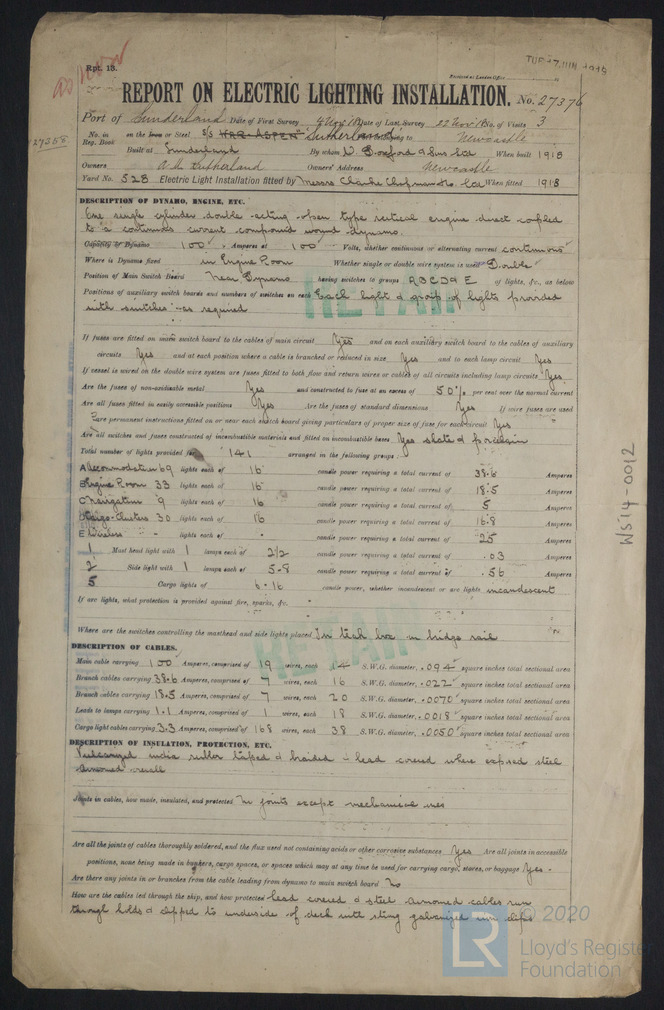 Rpt. 13.
Received at London Office
REPORT ON ELECTRIC LIGHTING INSTALLATION. No. 27376
Port of Sunderland Date of First Survey Date of Last Survey 22 Nov 18 No. of Visits 3
27358
No. in Reg. Book on the Iron or Steel S/S "WAR ASPEN" Sutherland Belonging to Newcastle
Built at Sunderland By whom W Doxford & Sons Ltd When built 1918
Owners A M Sutherland Owners' Address Newcastle
Yard No. 528 Electric Light Installation fitted by Messrs Clarke Chapman & Co Ltd When fitted 1918
DESCRIPTION OF DYNAMO, ENGINE, ETC.
One single cylinder double acting open type vertical engine direct coupled
to a continuous current compound wound dynamo.
Capacity of Dynamo 100 Amperes at 100 Volts, whether continuous or alternating current continuous
Where is Dynamo fixed in Engine Room Whether single or double wire system is used Double
Position of Main Switch Board Near Dynamo having switches to groups A B C D & E of lights, &c., as below
Positions of auxiliary switch boards and numbers of switches on each Each light & group of lights provided
with switches as required
RETAIN
If fuses are fitted on main switch board to the cables of main circuit Yes and on each auxiliary switch board to the cables of auxiliary
circuits Yes and at each position where a cable is branched or reduced in size Yes and to each lamp circuit Yes
If vessel is wired on the double wire system are fuses fitted to both flow and return wires or cables of all circuits including lamp circuits Yes
Are the fuses of non-oxidizable metal Yes and constructed to fuse at an excess of 50% per cent over the normal current
Are all fuses fitted in easily accessible positions Yes Are the fuses of standard dimensions Yes If wire fuses are used
are permanent instructions fitted on or near each switch board giving particulars of proper size of fuse for each circuit Yes
Are all switches and fuses constructed of incombustible materials and fitted on incombustible bases Yes slate & porcelain
Total number of lights provided for 141 arranged in the following groups:
A Accommodation 69 lights each of 16 candle power requiring a total current of 38.6 Amperes
B Engine Room 33 lights each of 16 candle power requiring a total current of 18.5 Amperes
C Navigation 9 lights each of 16 candle power requiring a total current of 5 Amperes
D Cargo-clusters 30 lights each of 16 candle power requiring a total current of 16.8 Amperes
E Wireless - lights each of - candle power requiring a total current of 25 Amperes
1 Mast head light with 1 lamps each of candle power requiring a total current of .03 Amperes
2 Side light with 1 lamps each of candle power requiring a total current of .56 Amperes
5 Cargo lights of 6-16 candle power, whether incandescent or arc lights incandescent
If arc lights, what protection is provided against fire, sparks, &c.
Where are the switches controlling the masthead and side lights placed In teak box on bridge rail
RETAIN
DESCRIPTION OF CABLES.
Main cable carrying 100 Amperes, comprised of 19 wires, each 14 S.W.G. diameter, .094 square inches total sectional area
Branch cables carrying 38.6 Amperes, comprised of 7 wires, each 16 S.W.G. diameter, .022 square inches total sectional area
Branch cables carrying 18.5 Amperes, comprised of 7 wires, each 20 S.W.G. diameter, .0070 square inches total sectional area
Leads to lamps carrying 1.1 Amperes, comprised of 1 wires, each 18 S.W.G. diameter, .0018 square inches total sectional area
Cargo light cables carrying 3.3 Amperes, comprised of 168 wires, each 38 S.W.G. diameter, .0050 square inches total sectional area
DESCRIPTION OF INSULATION, PROTECTION, ETC.
Vulcanized india rubber taped & braided - lead covered where exposed steel
armoured
Joints in cables, how made, insulated, and protected No joints except mechanical ones
Are all the joints of cables thoroughly soldered, and the flux used not containing acids or other corrosive substances Yes Are all joints in accessible
positions, none being made in bunkers, cargo spaces, or spaces which may at any time be used for carrying cargo, stores, or baggage Yes
Are there any joints in or branches from the cable leading from dynamo to main switch board No
How are the cables led through the ship, and how protected lead covered & steel armoured cables run
through holds & clipped to underside of deck with strong galvanized iron clips
WS14-0012
LR
© 2020
Lloyd's Register
Foundation